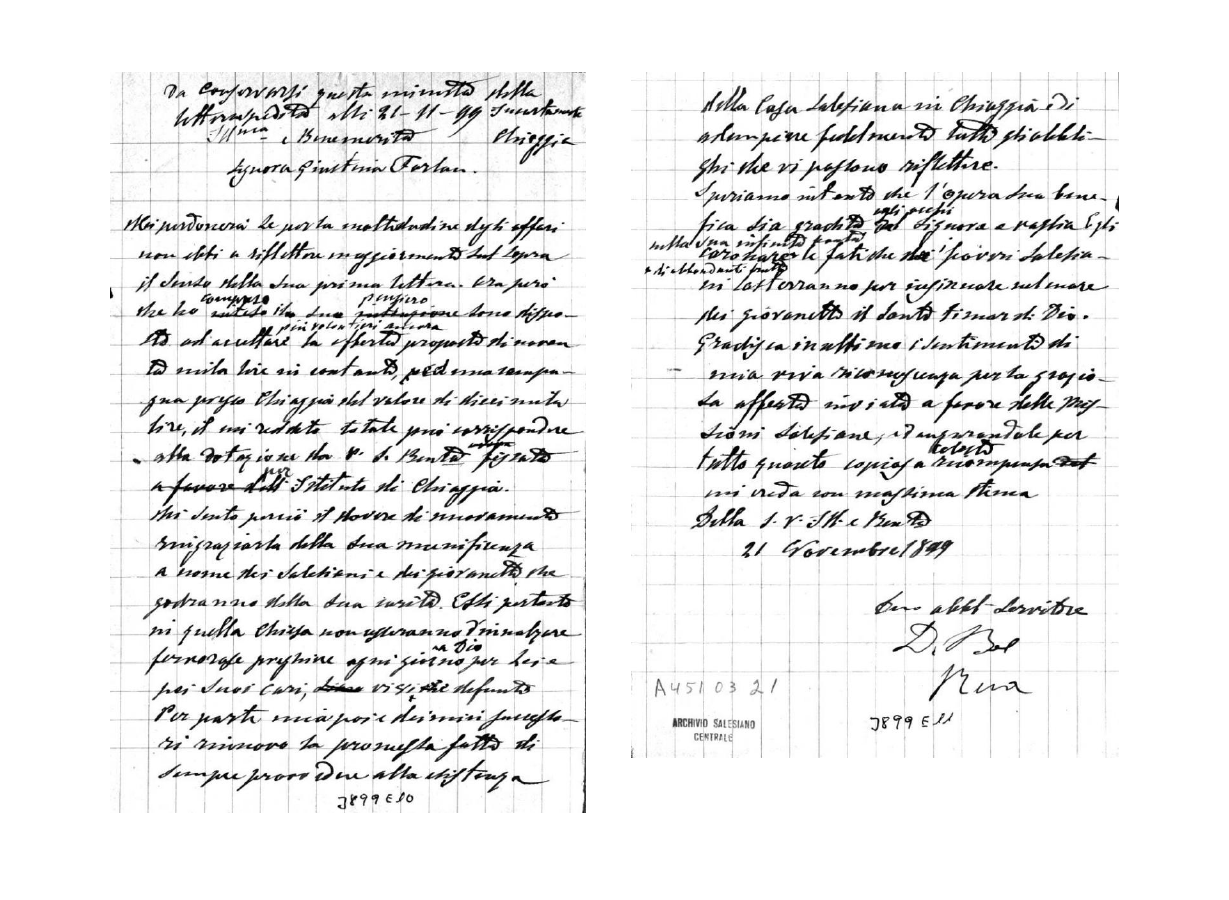 Da conservarsi questa minuta della
lettera spedita alli 21-11-99
Ill.ma e Benemerita Chioggia
Signora Giustina Forlan.
Mi perdonerà se per la moltitudine degli affari
non ebbi a riflettere maggiormente sul sopra
il senso della Sua prima lettera. Ora però
compreso pensiero
che ho inteso il Suo sono dispo-
più volentieri ancora
sto ad accettare la offerta proposta di novan
ta mila lire in contanti, ed una campa-
gna presso Chioggia del valore di dieci mila
lire, il cui reddito totale può corrispondere
alla dotazione da V. S. Benta fissata
per
a favore dell' Istituto di Chioggia.
Mi sento perciò il dovere di nuovamente
ringraziarla della Sua munificenza
a nome dei Salesiani e dei giovanetti che
godranno della Sua carità. Essi pertanto
in quella Chiesa non cesseranno d'innalzare
a Dio
fervorose preghiere ogni giorno per Lei e
pei Suoi cari, vivi che defunti
Per parte mia poi e dei miei successo-
ri rinnovo la promessa fatta di
sempre provvedere alla esistenza
J899 E10
della Casa Salesiana in Chioggia e di
adempiere fedelmente tutti gli obbli-
ghi che vi possono riflettere.
Speriamo intanto che l'opera Sua bene-
agli occhi
fica sia gradita Signore e voglia Egli
nella Sua infinita bontà
coronare le fatiche che i poveri Salesia-
di abbondanti frutti
ni sosterranno per insinuare nel cuore
dei giovanetti il santo timor di Dio.
Gradisca in ultimo i sentimenti di
mia viva riconoscenza per la grazio-
sa offerta inviata a favore delle Mis-
sioni Salesiane, ed augurandole per
celeste
tutto questo copiosa ricompensa del
mi creda con massima stima
Della S. V. Ill. e Benta
21 Novembre 1899
obbl. Servitore
D.
Rua
A4510321
ARCHIVIO SALESIANO
CENTRALE
J899 E11